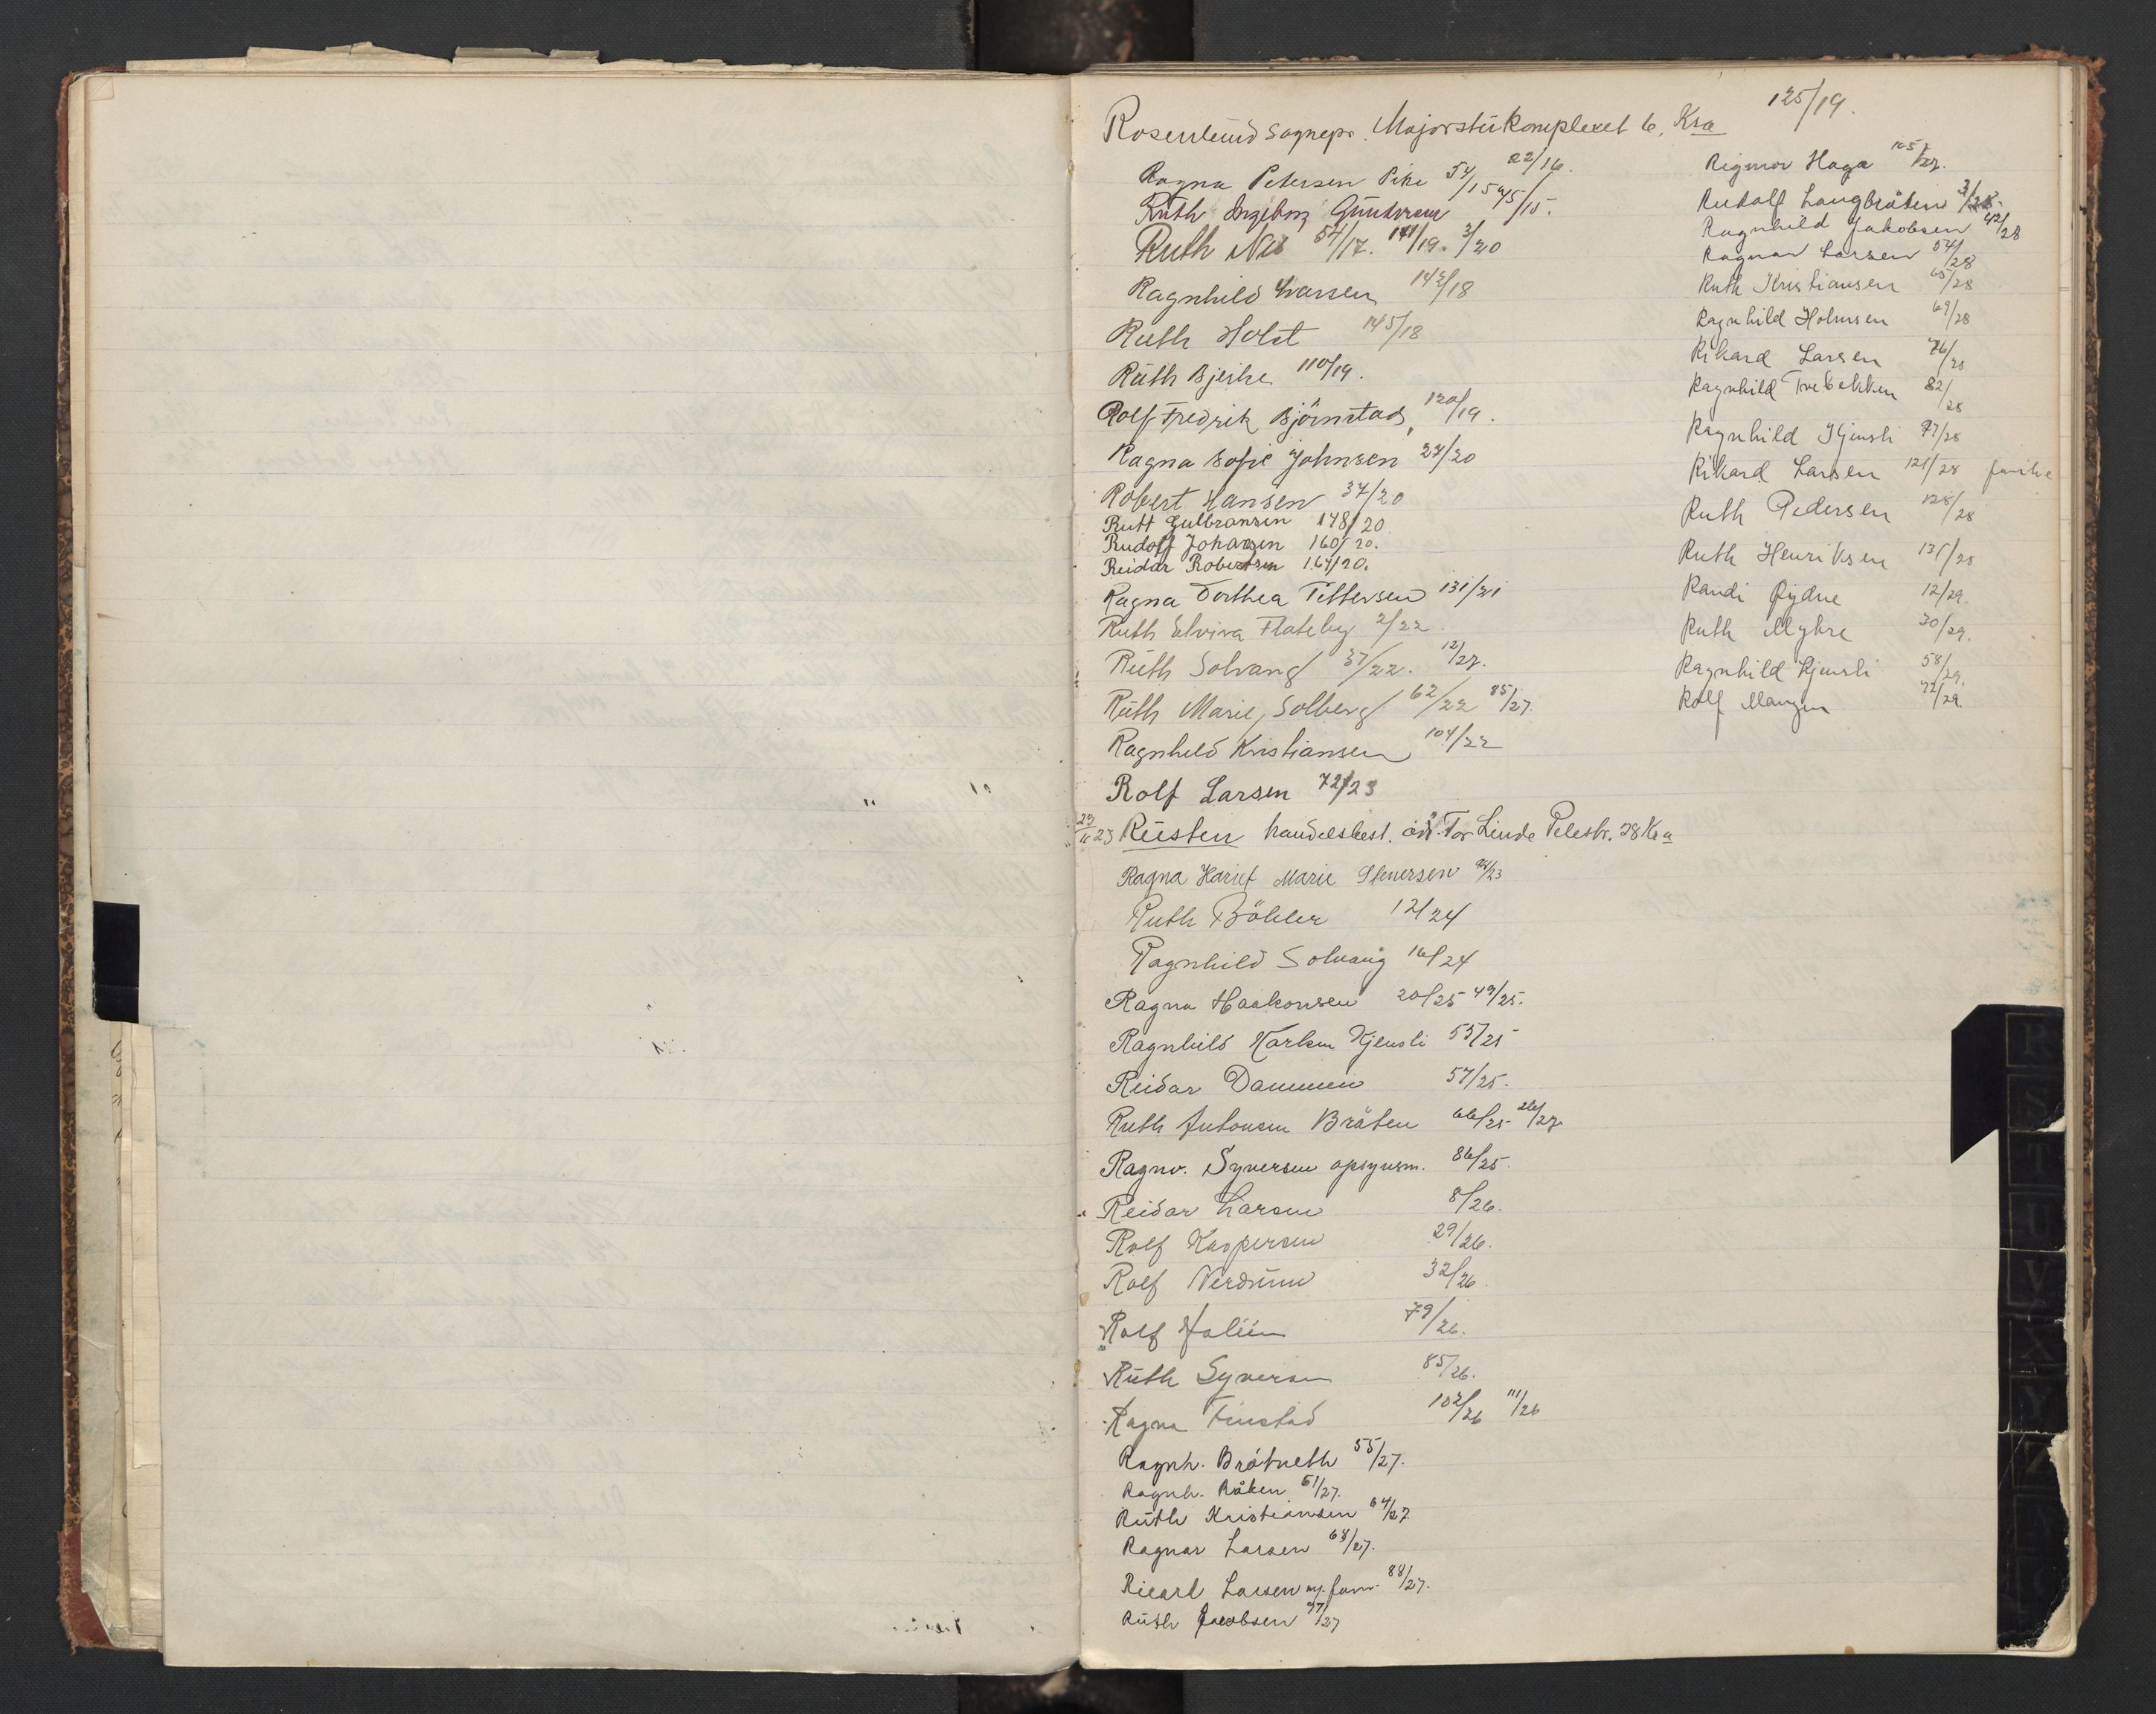 125/19.
Rosenlund sognepr. Majorstükomplexet 6, Kra
Ragna Petersen Pike 54/15 22/16.
Ruth Ingeborg Gundersen 45/15.
Ruth Nes 54/17. 141/19. 3/20
Ragnhild Larsen 142/18
Ruth Holst 145/18
Ruth Bjerke 110/19.
Rolf Fredrik Björnstad, 120/19.
Ragna Sofie Johnsen 24/20
Robert Hansen 34/20
Rutt Gulbransen 148/20
Rudolf Johansen 160/20.
Reidar Robertsen 164/20.
Ragna Dorthea Pettersen 131/21
Ruth Elvira Flateby 2/22.
Ruth Solvang 37/22. 12/27.
Ruth Marie Solberg 62/22 85/27.
Ragnhild Kristiansen 104/22
Rolf Larsen 72/23
Rüsten handelsbest. adr. Tor Linde Pilestr. 28 Kra
Ragna Hariet Marie Stenersen 94/23
Ruth Böhler 12/24
Ragnhild Solvang 16/24
Ragna Haakonsen 20/25 49/25.
Ragnhild Karlsen Kjensli 55/25
Reidar Dammen 57/25.
Ruth Antonsen Bråten 66/25 26/27
Ragnv. Syversen opsynsm. 86/25.
Reidar Larsen 8/26.
Rolf Kaspersen 29/26.
Rolf Nerdrum 32/26.
Rolf 79/26.
Ruth Syversen 85/26.
Ragna Finstad 102/26 111/26
Ragnh. Bråtveth 55/27.
Ragnh. Råken 61/27.
Ruth Kristiansen 64/27
Ragnar Larsen 68/27.
Ricarl Larsen m. fam. 88/27.
Ruth Jacobsen 97/27
Rigmor Haga 105/27.
Rudolf Langbråten 3/28.
Ragnhild Jakobsen 42/28
Ragnar Larsen 54/28
Ruth Kristiansen 65/28
Ragnhild Holmsen 69/28
Rikard Larsen 76/28
Ragnhild Trebekken 82/28
Ragnhild Kjensli 97/28
Rikard Larsen 121/28 familie
Ruth Pedersen 128/28
Ruth Henriksen 131/28
Randi 12/29.
Ruth Myhre 30/29.
Ragnhild Kjensli 58/29.
Rolf 72/29
R
S
T
U
V
X
Y
Z